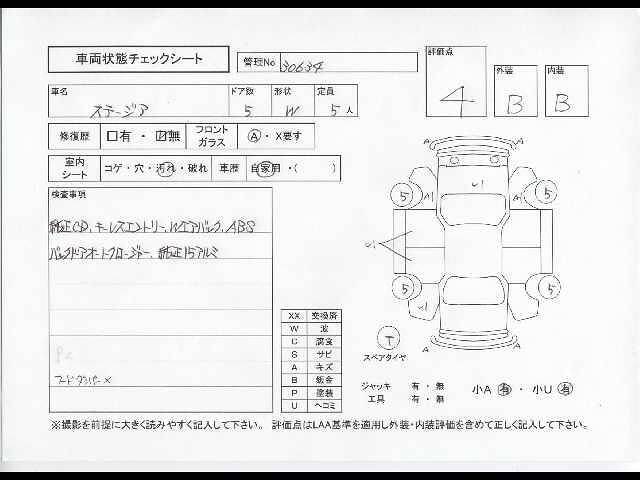 車両状態チェックシート
管理No 30634
評価点
4
外装
B
内装
B
車名 ドア数 形状 定員
ステージア 5 W 5 人
修復歴 □有・☑無 フロントガラス Ⓐ・X要す
室内シート コゲ・穴・汚れ・破れ 車歴 自家用・( )
検査事項
純正CD、キーレスエントリー、Wエアバック、ABS
バックドアオートクロージャー、純正15アルミ
フードダンパー×
XX 交換済
W 波
C 腐食
S サビ
A キズ
B 鈑金
P 塗装
U ヘコミ
A A
5 A1 A1 5
5 5
T
スペアタイヤ
A A
ジャッキ 有・無
工具 有・無
小A 有・小U 有
※撮影を前提に大きく読みやすく記入して下さい。 評価点はLAA基準を適用し外装・内装評価を含めて正しく記入して下さい。